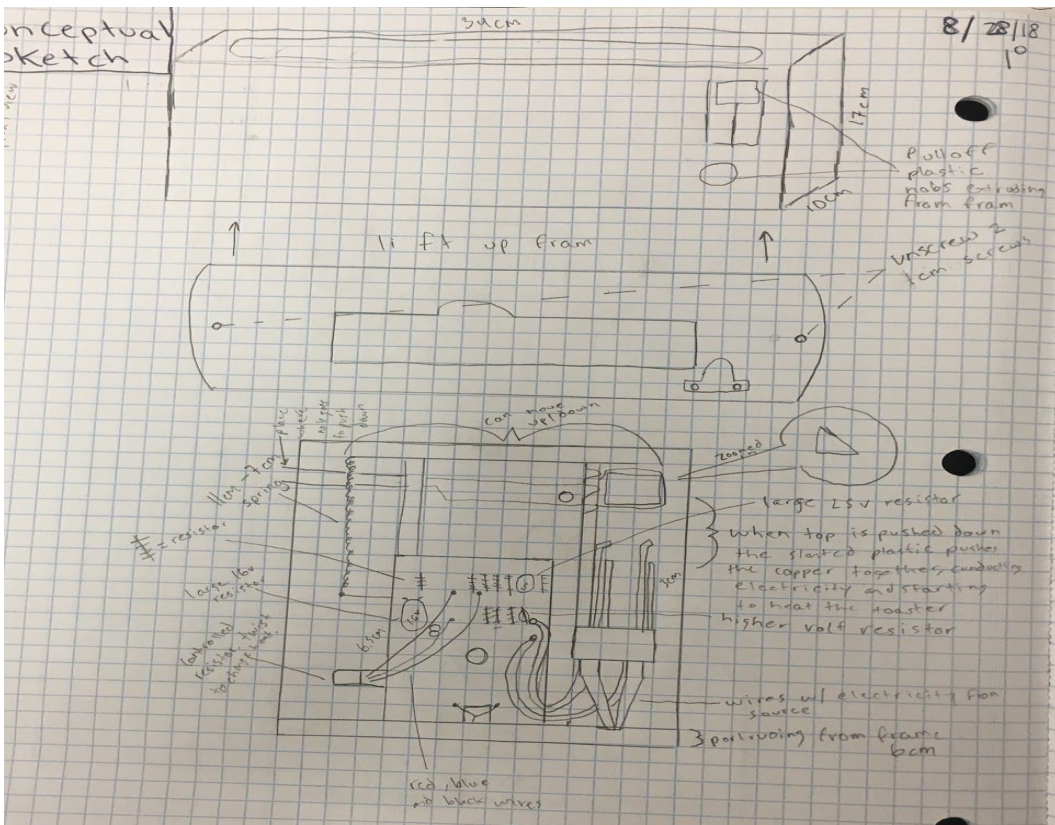 onceptual
sketch
view
8/28/18
1°
34cm
17cm
10cm
Pull off
plastic
nobs extrading
from fram
lift up fram
unscrew 2
1cm screws
place
where
to push
down
can move
up/down
zoomed
11cm-7cm
spring
= resistor
large 16v
resistor
controlled
resistor, twist
to change
16v
6.5cm
3cm
large 25v resistor
when top is pushed down
the slanted plastic pushes
the copper together, conducting
electricity and starting
to heat the toaster
higher volt resistor
wires w/ electricity from
source
portruding from frame
6cm
red, blue
and black wires